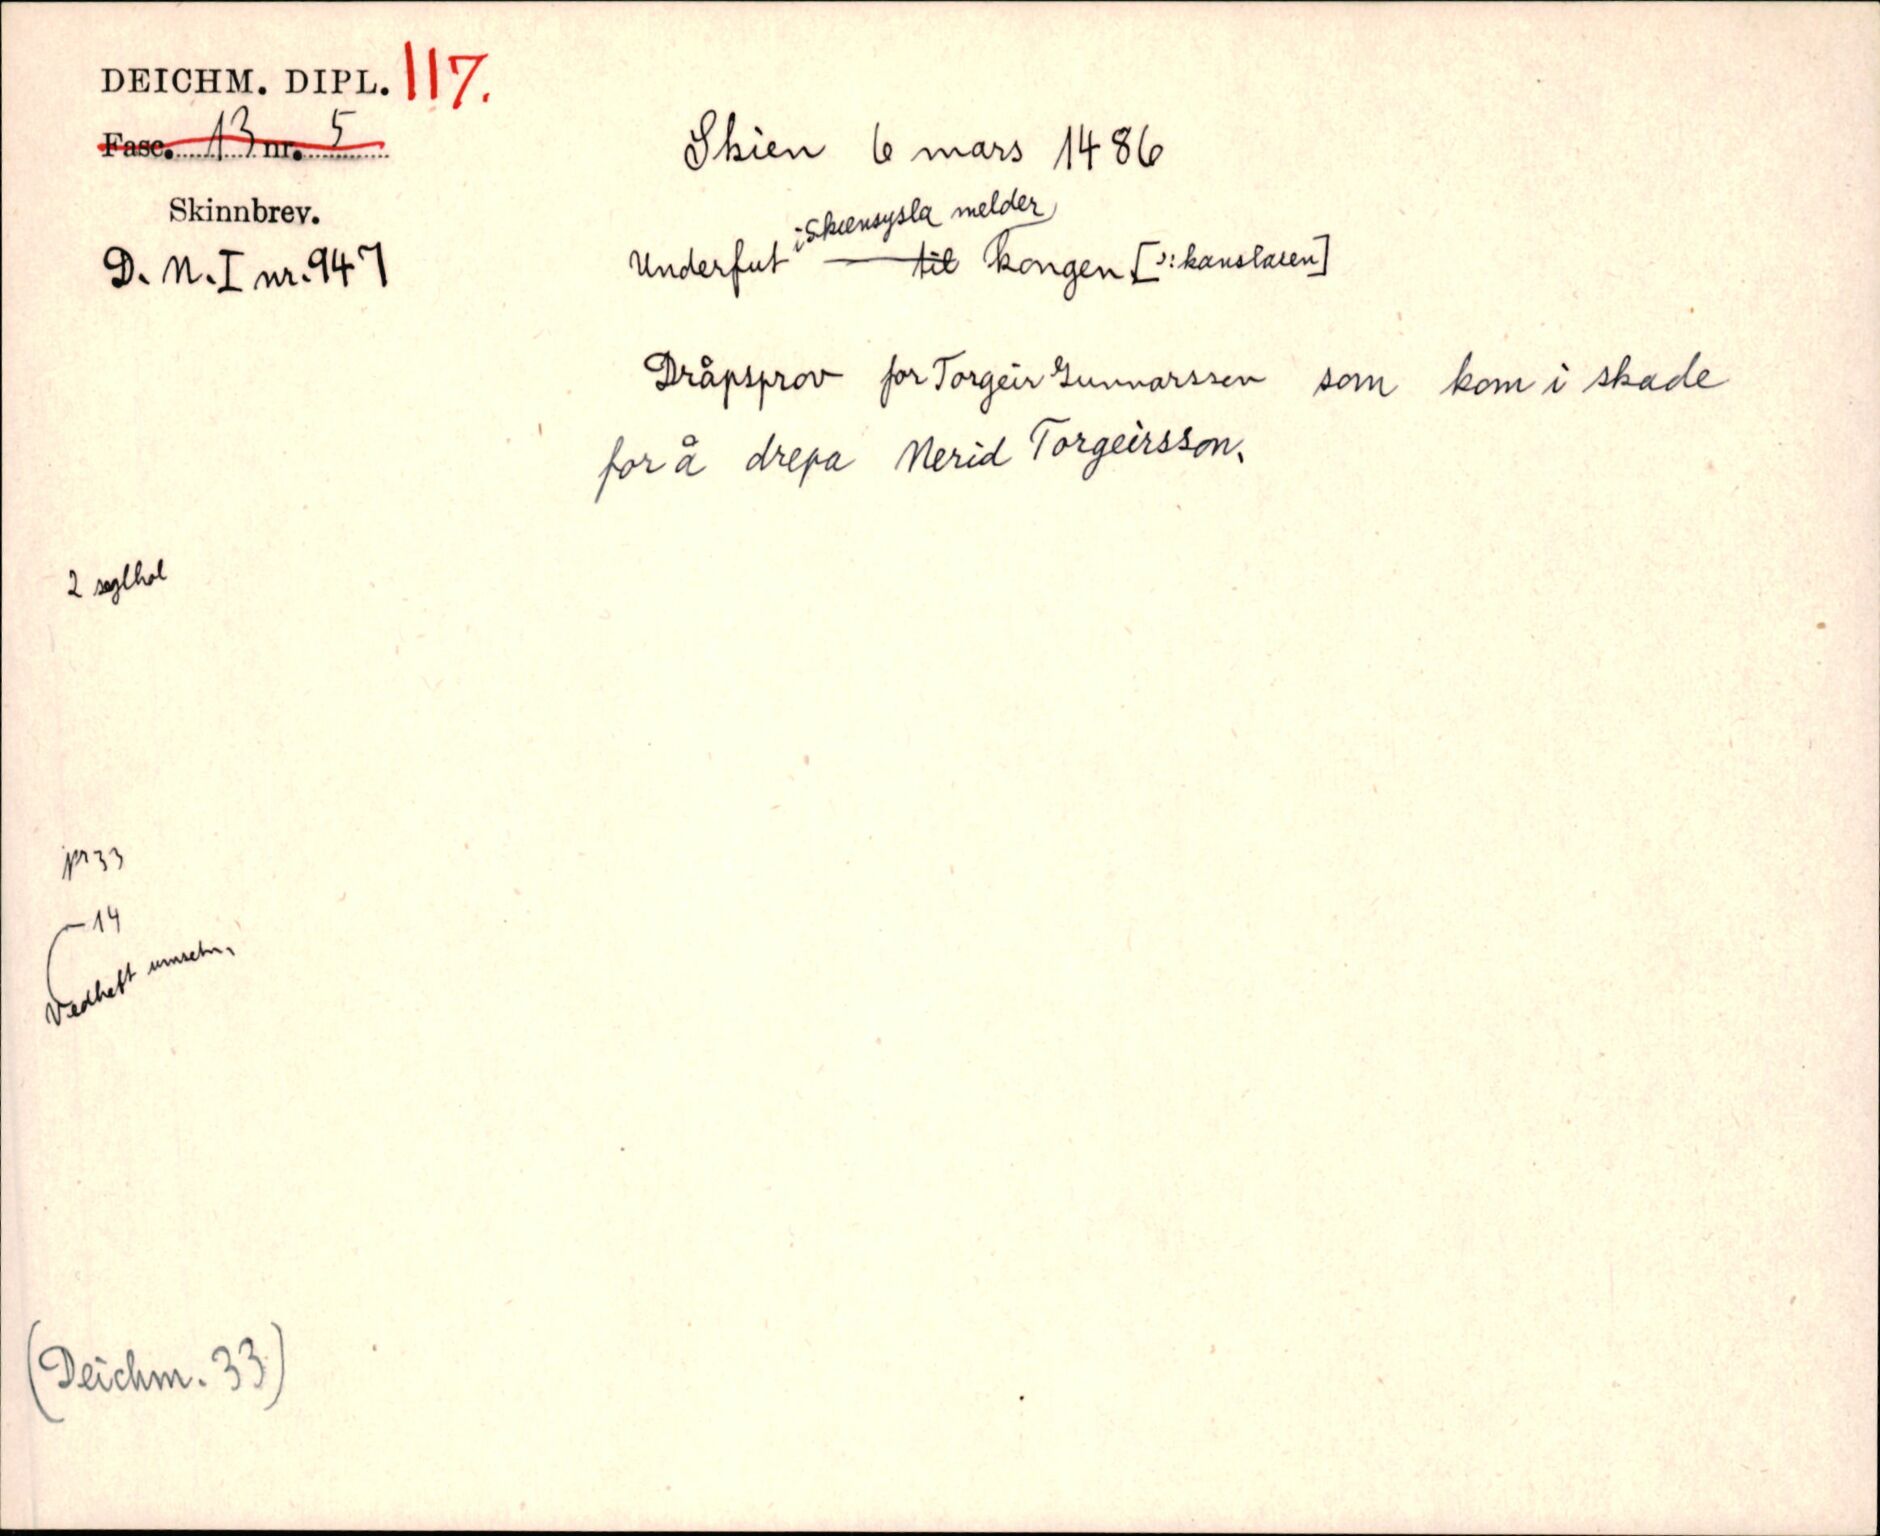 DEICHM. DIPL. 117.
Fasc. 13 nr. 5
Skinnbrev.
D.N.I nr. 947
Skien 6 mars 1486
i Skiensysla melder
Underfut til kongen [ɔ: kanslaren]
Dråpsprov for Torgeir Gunnarssen som kom i skade
for å drepa Nerid Torgeirsson.
2 seglhol
pr 33
— 14
Vedheft umsetn.
(Deichm. 33)